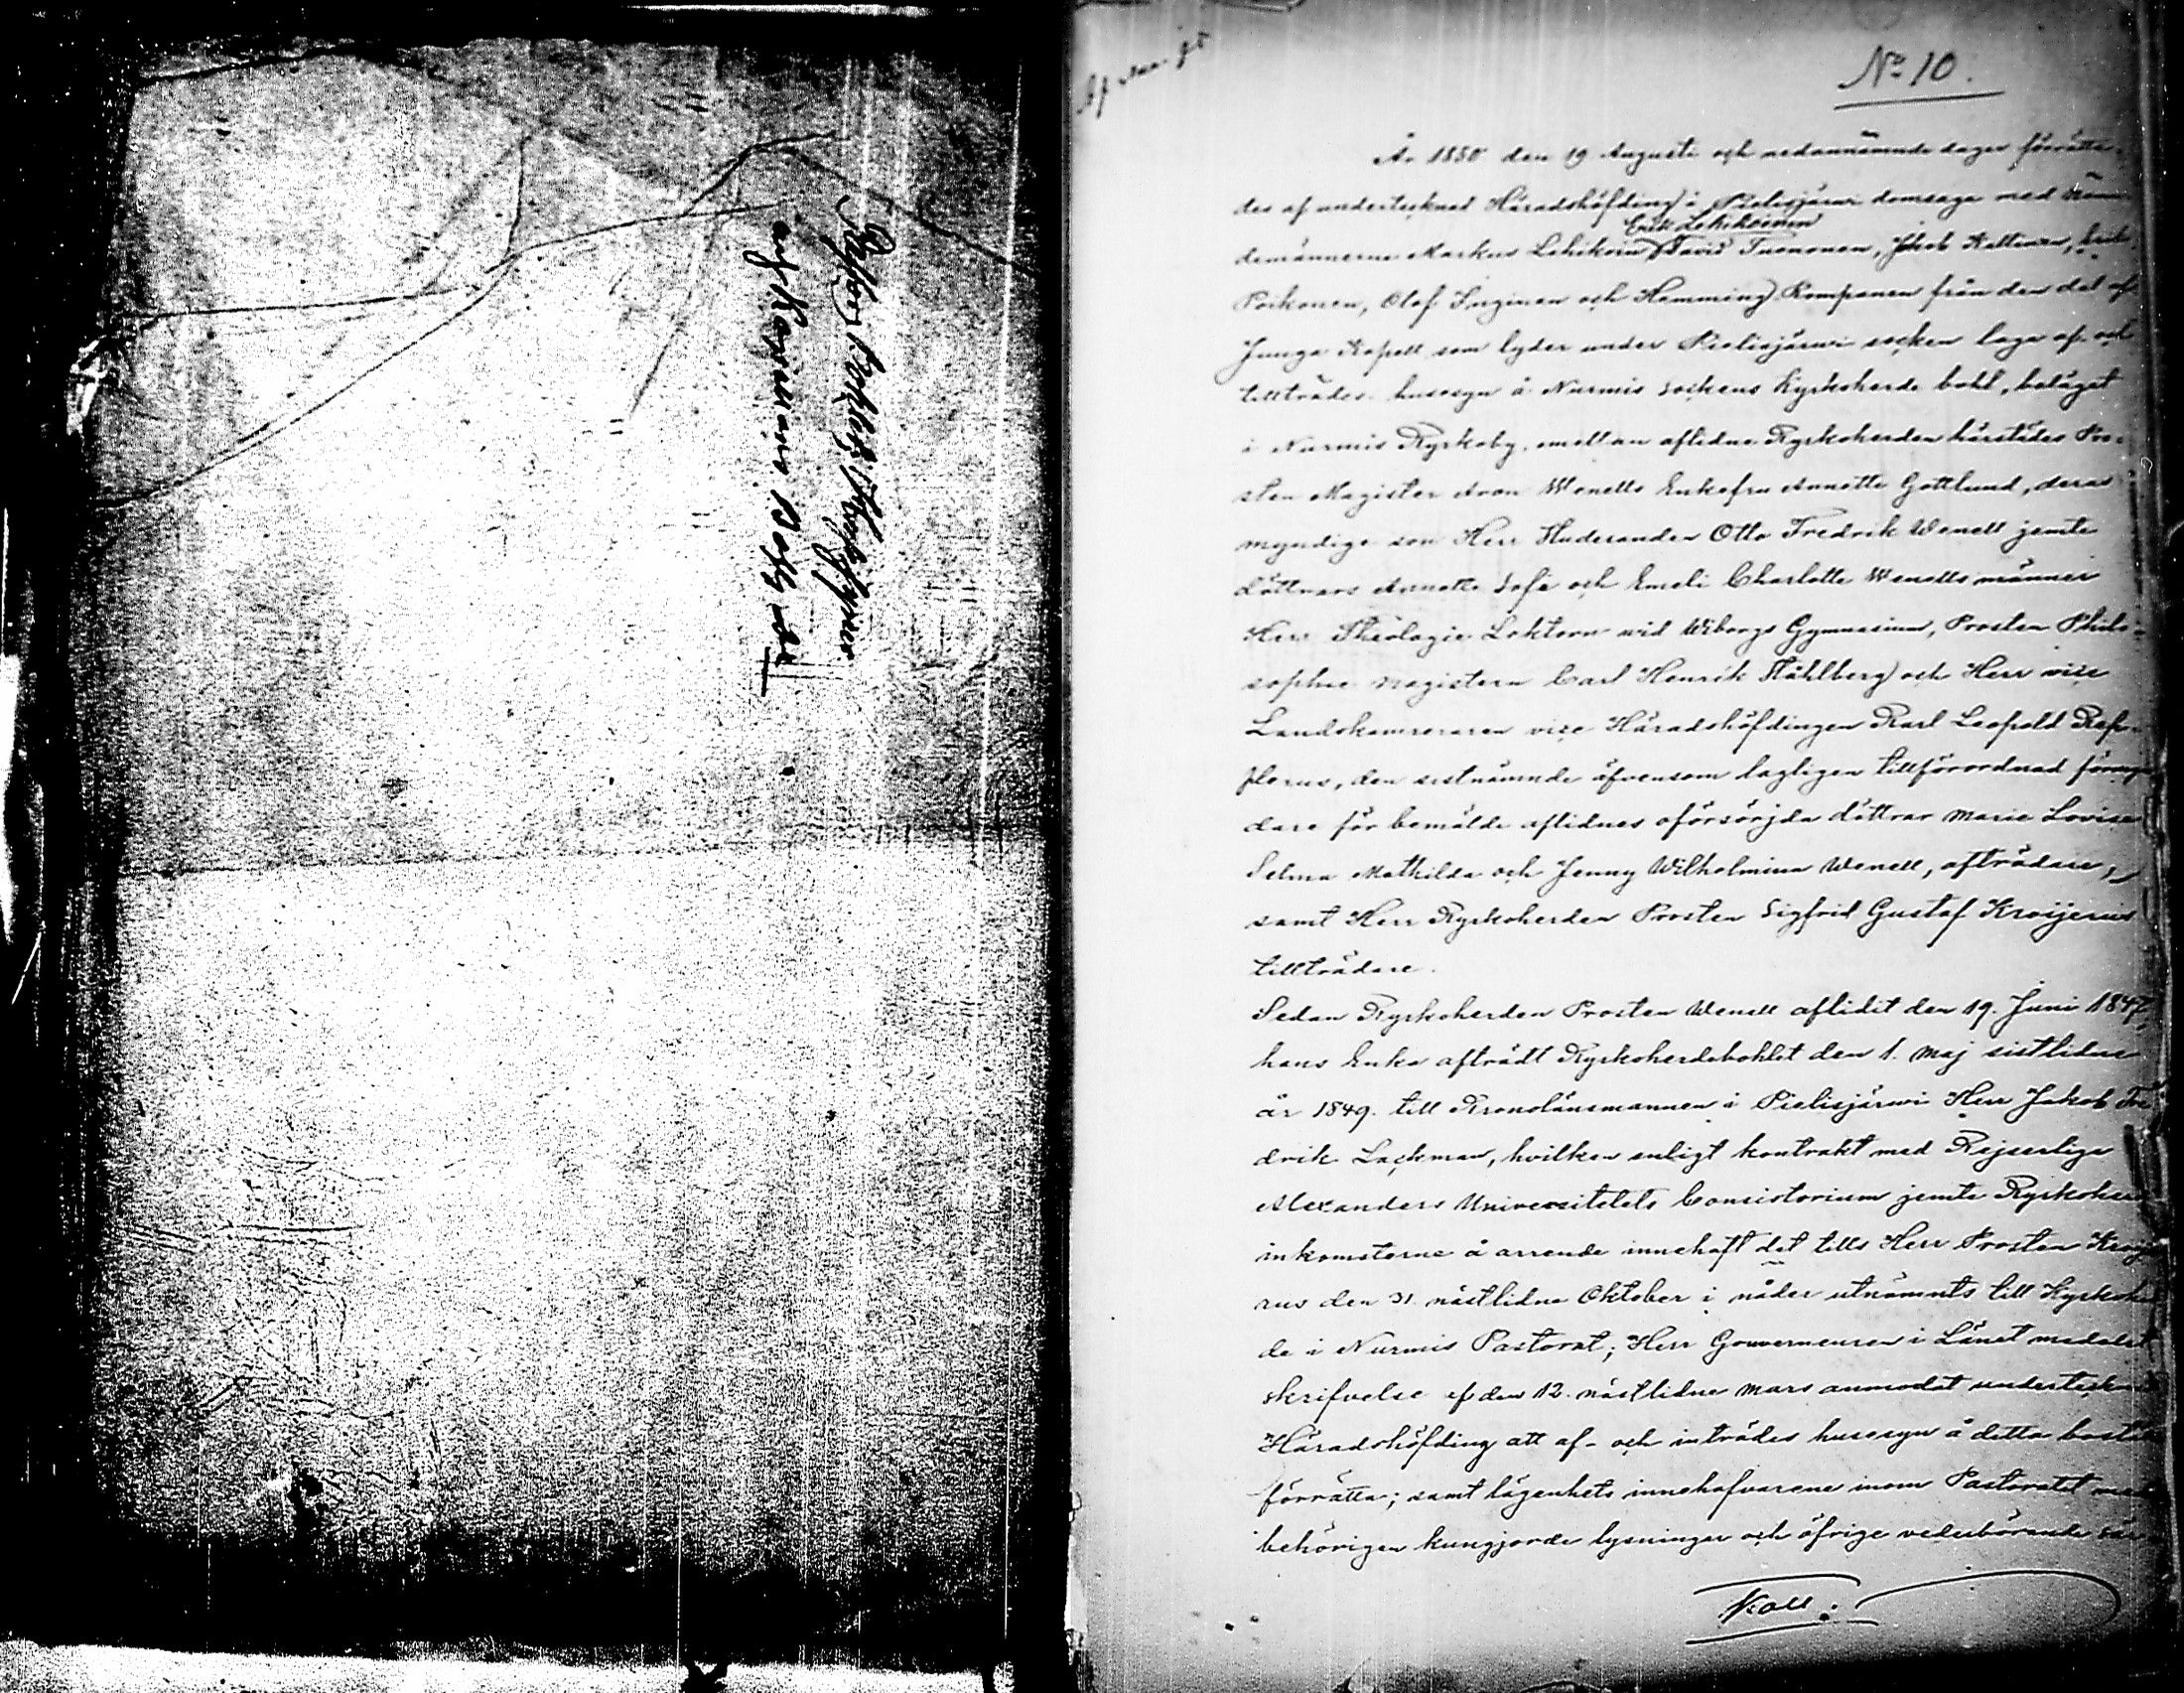 No 10.
År 1850 den 19 Augusti och nedannämnde dagar förrätta-
des af undertecknad Häradshöfding i Pielisjärvi domsaga med
Erik Lehikoinen
demännerne Markus Lehikoin David Tuononen, Jakob Kettunen, Erik
Poikonen, Olof Inginen och Hemming Romppanen från den del af
Juuga Kapell som lyder under Pielisjärvi socken laga af- och
tillträdes husesyn å Nurmis sockens Kyrkoherde bohl, beläget
i Nurmis Kyrkoby, emellan aflidne Kyrkoherden härstädes Pro-
sten Magister Aron Wenells Enkefru Annette Gottlund, deras
myndige son Herr Studeranden Otto Fredrik Wenell jemte
döttrars Annette Sofi och Emeli Charlotte Wenells männer
Herr Theologie Lektorn vid Wiborgs Gymnasium, Prosten Philo-
sophie magistern Carl Henrik Ståhlberg och Herr vice
Landskamreraren vice Häradshöfdingen Karl Leopold
den sistnämnde äfvensom lagligen tillförordnad förmyn
dare för bemälde aflidnes oförsörjda döttrar Marie Lovise
Selma Mathilda och Jenny Wilhelmina Wenell, afträdare,
samt Herr Kyrkoherden Prosten Sigfrid Gustaf Kroijerus
tillträdare.
Sedan Kyrkoherden Prosten Wenell aflidit den 19. Juni 1847,
hans Enka afträdt Kyrkoherdebohlet den 1. Maj sistlidne
år 1849. till Kronolänsmannen i Pielisjärvi Herr Jakob Fre
drik Lackman, hvilken enligt kontrakt med Kejserliga
Alexanders Universitetets Consistorium jemte Kyrkoherde
inkomsterne å arrende innehaft det tills Herr Prosten Kroije
rus den 31. nästlidne Oktober i nåder utnämnts till Kyrkoher
de i Nurmis Pastorat; Herr Gouverneuren i Länet medelst
skrifvelse af den 12. nästlidne Mars anmodat undertecknad
Häradshöfding att af- och inträdes husesyn å detta boställe
förrätta; samt lägenhets innehafvarene inom Pastoratet
behörigen kungjorde lysningar och öfrige vederbörande
Koll.